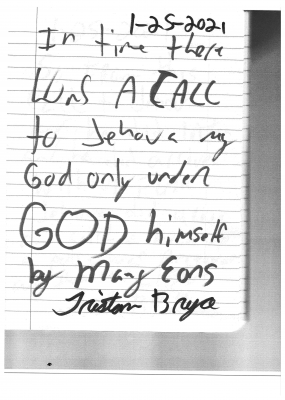 1-25-2021
In time there
WAS A CALL
to Jehova my
God only under
GOD himself
by Many Eons
Tristan Bryce